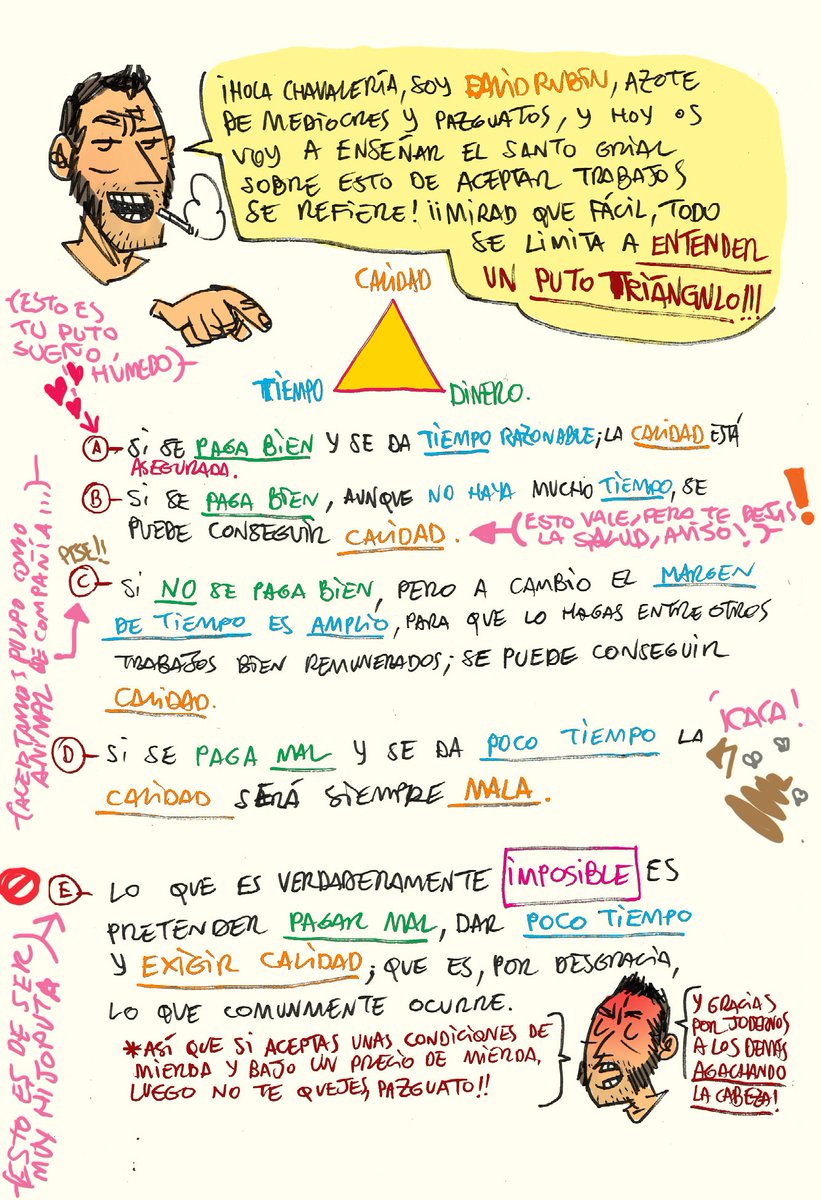 ¡HOLA CHAVALERÍA, SOY DAVID RUBÍN, AZOTE
DE MEDIOCRES Y PAZGUATOS, Y HOY OS
VOY A ENSEÑAR EL SANTO GRIAL
SOBRE ESTO DE ACEPTAR TRABAJOS
SE REFIERE! ¡¡MIRAD QUE FÁCIL, TODO
SE LIMITA A ENTENDER
UN PUTO TRIÁNGULO!!!
CALIDAD
TIEMPO
DINERO.
(ESTO ES
TU PUTO
SUEÑO
HÚMEDO)
A- SI SE PAGA BIEN Y SE DA TIEMPO RAZONABLE; LA CALIDAD ESTÁ
ASEGURADA.
B- SI SE PAGA BIEN, AUNQUE NO HAYA MUCHO TIEMPO, SE
PUEDE CONSEGUIR CALIDAD.
(ESTO VALE, PERO TE DEJAS
LA SALUD, AVISO!)
!
PSE!!
C- SI NO SE PAGA BIEN, PERO A CAMBIO EL MARGEN
DE TIEMPO ES AMPLIO, PARA QUE LO HAGAS ENTRE OTROS
TRABAJOS BIEN REMUNERADOS; SE PUEDE CONSEGUIR
CALIDAD.
(ACEPTAMOS PULPO COMO
ANIMAL DE COMPAÑÍA...)
D- SI SE PAGA MAL Y SE DA POCO TIEMPO LA
CALIDAD SERÁ SIEMPRE MALA.
¡CACA!
E- LO QUE ES VERDADERAMENTE IMPOSIBLE ES
PRETENDER PAGAR MAL, DAR POCO TIEMPO
Y EXIGIR CALIDAD; QUE ES, POR DESGRACIA,
LO QUE COMUNMENTE OCURRE.
(ESTO ES DE SER
MUY HIJOPUTA)
*ASÍ QUE SI ACEPTAS UNAS CONDICIONES DE
MIERDA Y BAJO UN PRECIO DE MIERDA,
LUEGO NO TE QUEJES, PAZGUATO!!
Y GRACIAS
POR JODERNOS
A LOS DEMÁS
AGACHANDO
LA CABEZA!